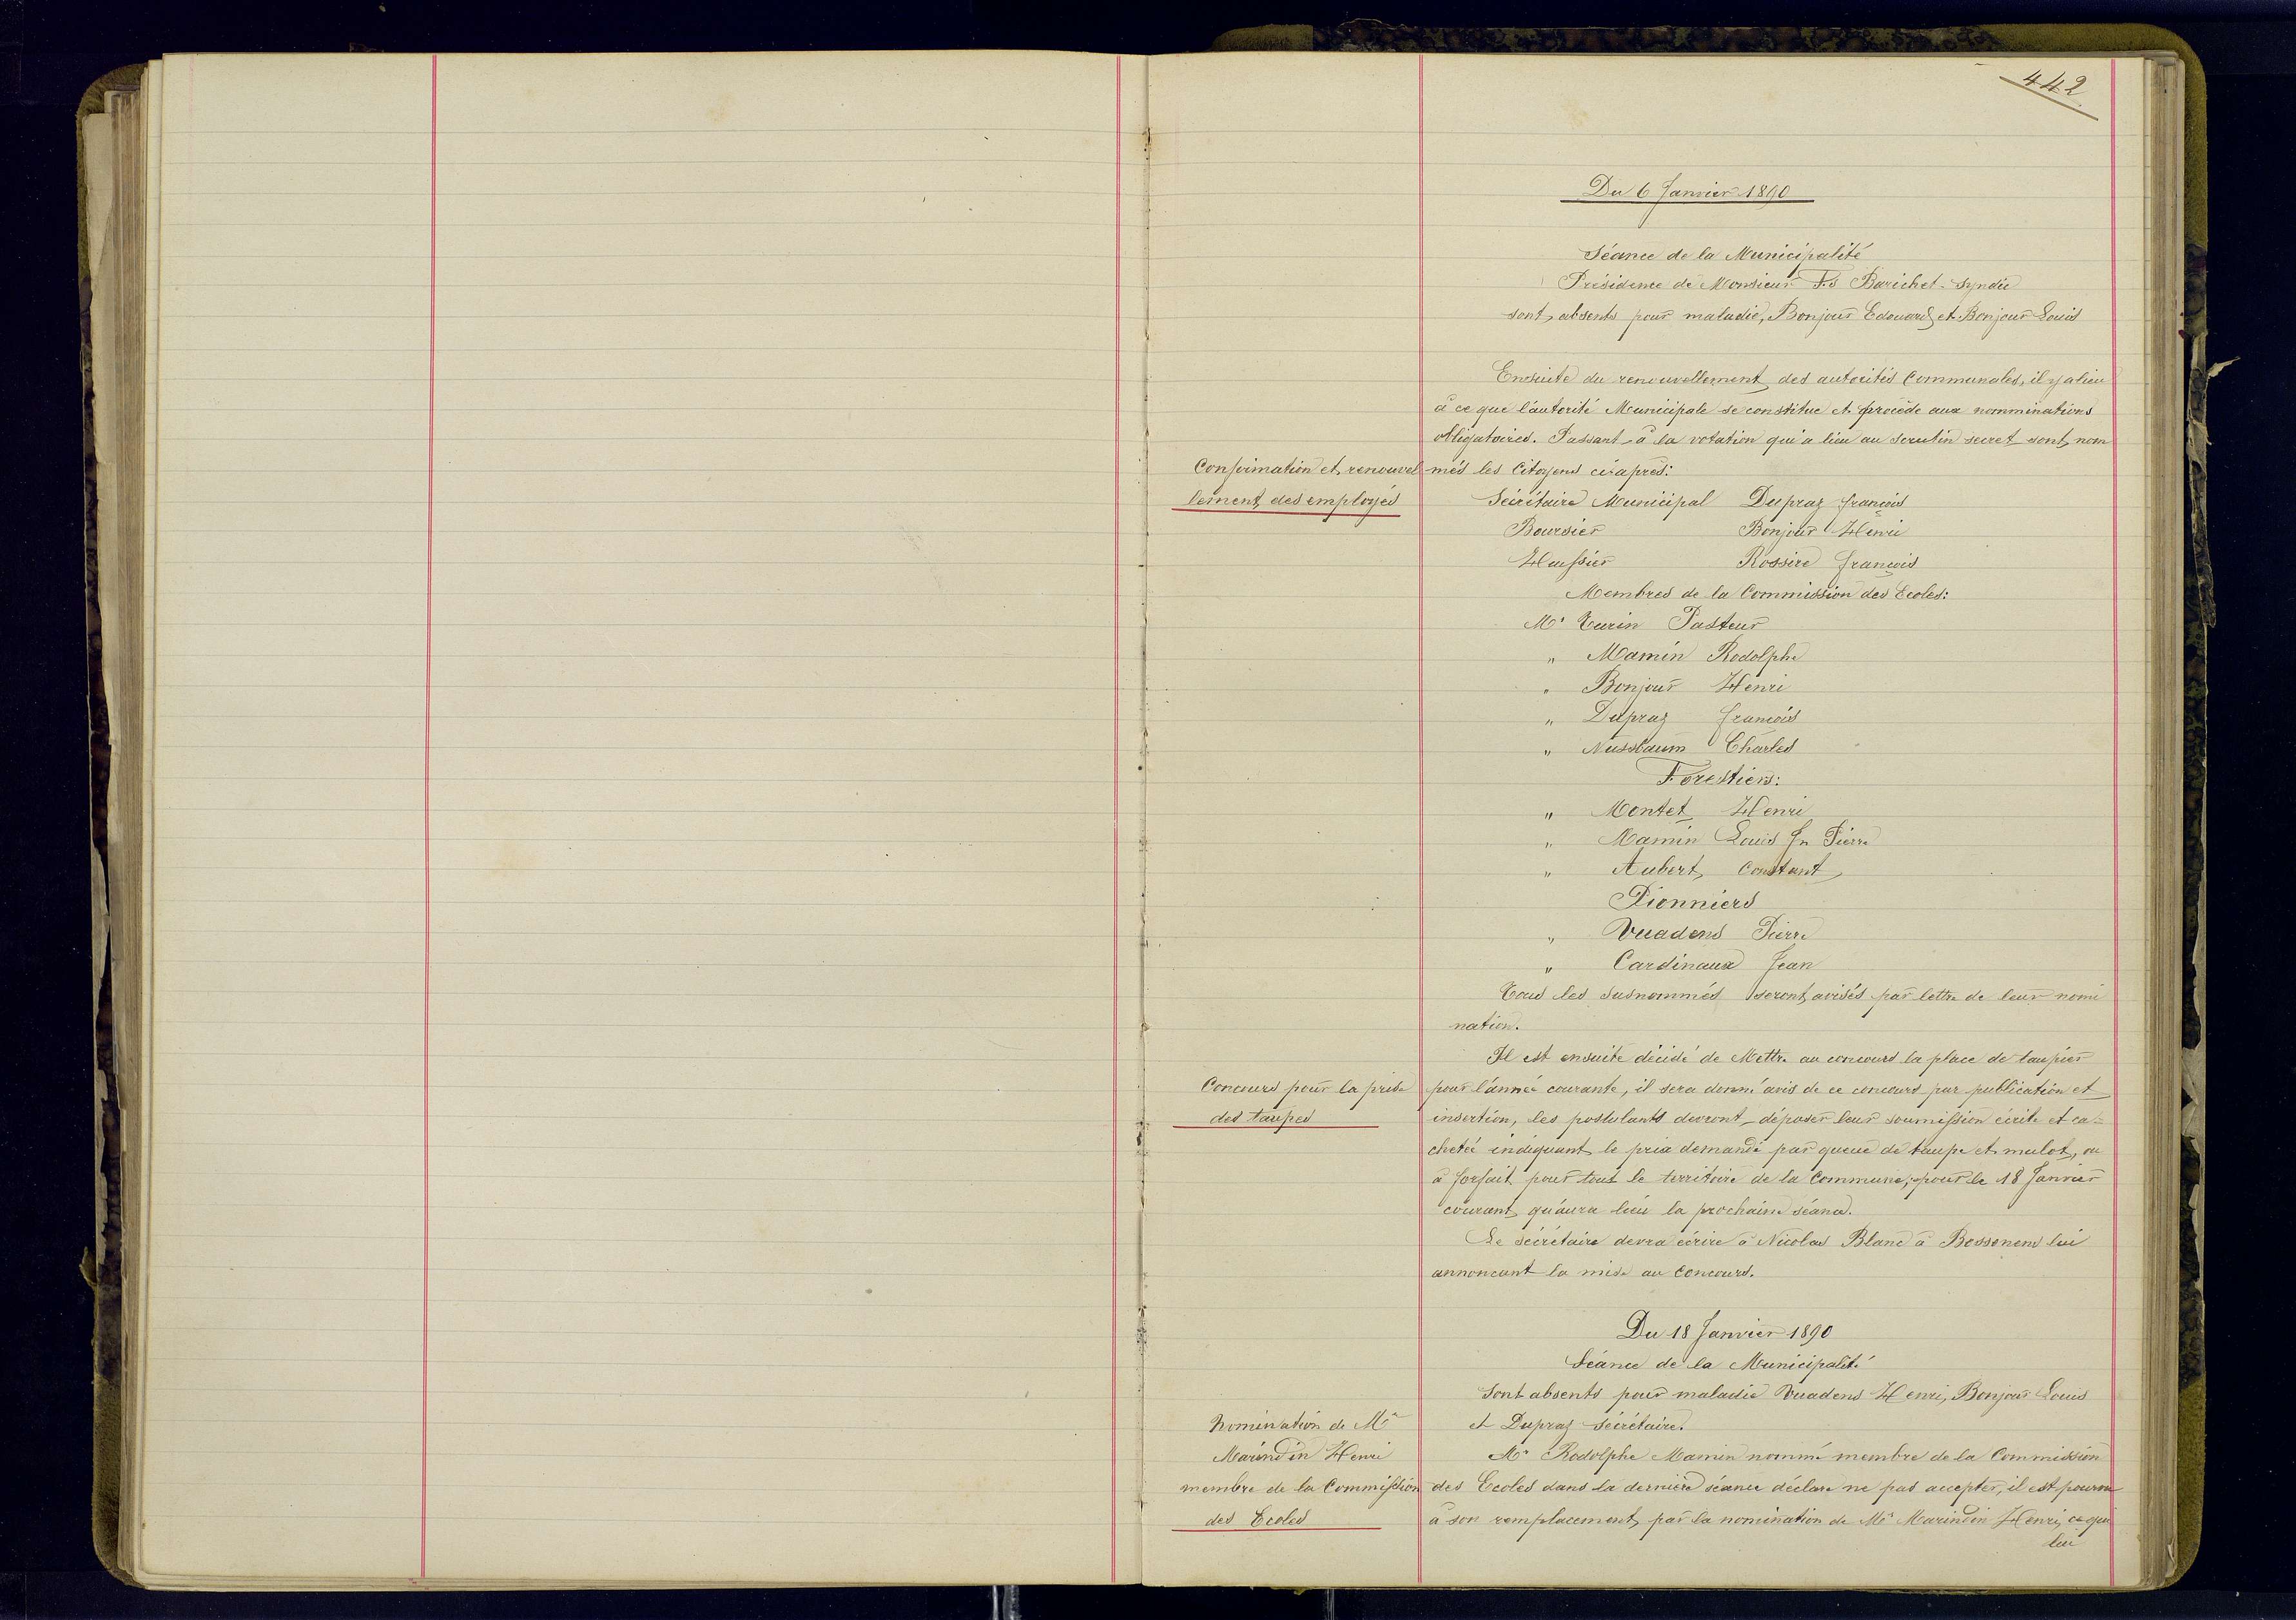 442
Du 6 Janvier 1890
Séance de la Municipalité
Présidence de Monsieur Fs Barichet Syndic
sont absents pour maladie, Bonjour Edouard et Bonjour Louis
Ensuite du renouvellement des autorités Communales, il y a lieu
à ce que l'autorité Municipale se constitue et procède aux nomminations
obligatoires. Passant à la votation qui a lieu au scrutin secret sont nom
Confirmation et renouvel
més les Citoyens ci-après:
lement des employés
Sécrétaire Municipal Dupraz françois
Boursier Bonjour Henri
Huissier Rossire françois
Membres de la Commission des Ecoles:
Mr Turin Pasteur
" Mamin Rodolphe
" Bonjour Henri
" Dupraz françois
" Nussbaum Charles
Forestiers:
" Montet Henri
" Mamin Louis Jn Pierre
" Aubert Constant
Pionniers
" Vuadens Pierre
" Cardinaux Jean
Tous les susnommés seront avisés par lettre de leur nomi
nation.
Il est ensuite décidé de Mettre au concours la place de taupier
Concours pour la prise
pour l'année courante, il sera donné avis de ce concours par publication et
des taupes
insertion, les postulants devront déposer leur soumission écrite et ca-
chetée indiquant le prix demandé par queue de taupe et mulot, ou
à forfait pour tout le territoire de la Commune, pour le 18 Janvier
courant qu'aura lieu la prochaine séance.
Le sécrétaire devra écrire à Nicolas Blanc à Bossonens lui
annoncant la mise au Concours.
Du 18 Janvier 1890
Séance de la Municipalité
Sont absents pour maladie Vuadens Henri, Bonjour Louis
Nomination de Mr
et Dupraz Sécrétaire.
Marindin Henri
Mr Rodolphe Mamin nommé membre de la Commission
membre de la Commission
des Ecoles dans la dernière séance déclare ne pas accepter, il est pourvu
des Ecoles
à son remplacement par la nomination de Mr Marindin Henri, ce qui
lui